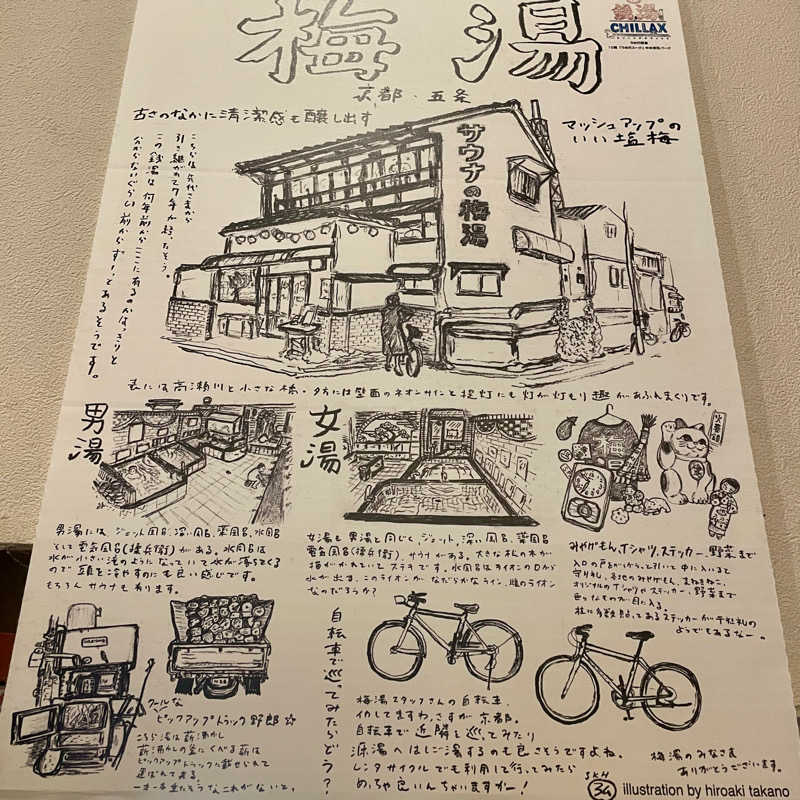 梅湯
CHILLAX
京都・五条
古さのなかに清潔感も醸し出す
マッシュアップの
いい塩梅
サウナの梅湯
こちらは先代さまから
引き継がれて7年が経ったそう。
この銭湯は何年前からここに有るのかはっきりと
分からないぐらい前からず〜っとあるそうです。
表には高瀬川と小さな橋・夕方には壁面のネオンサインと提灯にも灯が灯もり趣があふれまくりです。
男湯
男湯には、ジェット風呂、深い風呂、薬風呂、水風呂
そして電気風呂(揉兵衛)がある。水風呂は
水が小さい滝のようになっていて水が落ちてくる
ので頭を冷やすのにも良い感じです。
もちろんサウナも有ります。
女湯
女湯も男湯と同じく、ジェット、深い風呂、薬風呂
電気風呂(揉兵衛)、サウナがある。大きな松の木が
描かれていてステキです。水風呂はライオンの口から
水が出ま。このライオンがなだらかなライン、雌のライオン
なのだろうか?
みやげもん、Tシャツ、ステッカー、野菜まで
入口の戸をガラガラっと引いて中に入ると
守り札、各地のみやげもん、まねきねこ、
オリジナルのTシャツやステッカー、野菜まで
色々なものが目に入る。
柱に多数貼ってあるステッカーが千社札の
ようでもあるなー。
クールな
ピックアップトラック野郎☆
こちら湯は薪沸かし
薪沸かしの釜にくべる薪は
ピックアップトラックに載せられて
運ばれて来る。
一本一本重たそうなこれがないと、
自転車で巡ってみたらどう?
梅湯スタッフさんの自転車。
イカしてますわ。さすが京都。
自転車で近隣を巡ってみたり
源湯へはしご湯するのも良さそうですよね。
レンタサイクルでも利用して行ってみたら
めっちゃ良いんちゃいますかー!
梅湯のみなさま
ありがとうございます。
SKH
34
illustration by hiroaki takano